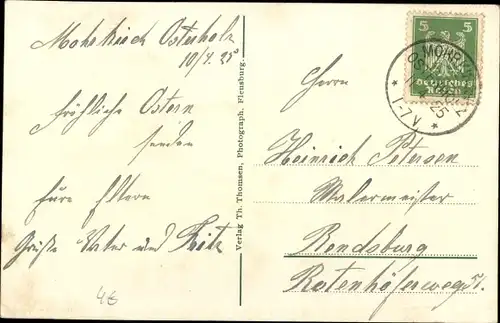 Mohrkirch Osterholz
10/4. 25
Fröhliche Ostern
senden
Eure Eltern
Grüße Vater und Fritz
4€
Verlag Th. Thomsen, Photograph, Flensburg.
5 5
Deutsches
Reich
1-7 V
Herrn
Heinrich Petersen
Malermeister
Rendsburg
Rotenhöferweg